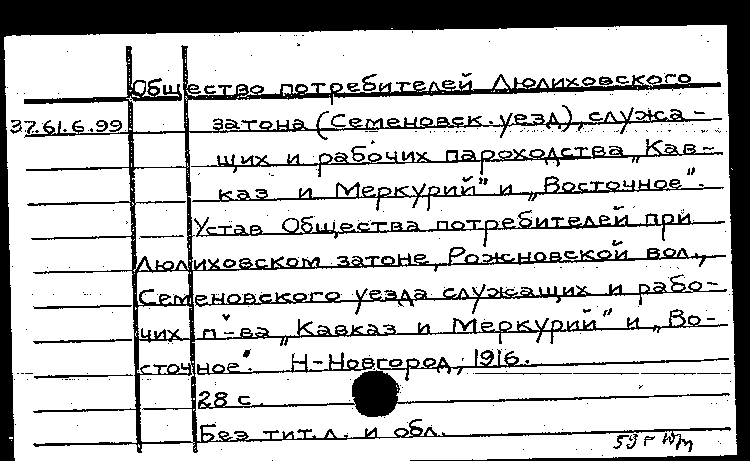 Общество потребителей Люлиховского
37.61.6.99 затона (Семеновск. уезд), служа-
щих и рабочих пароходства „Кав-
каз и Меркурий" и „Восточное".
Устав Общества потребителей при
Люлиховском затоне, Рожновской вол.,
Семеновского уезда служащих и рабо-
чих п-ва „Кавказ и Меркурий" и „Во-
сточное". Н-Новгород, 1916.
28 с.
Без тит. л. и обл.
59г